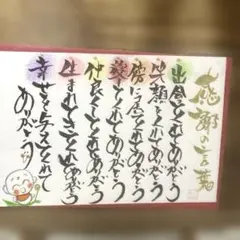 感謝の言葉
出会ってくれてありがとう
笑顔をくれてありがとう
傍に居てくれてありがとう
仲良くしてくれてありがとう
生まれてきてくれてありがとう
幸せを与えてくれて
ありがとう